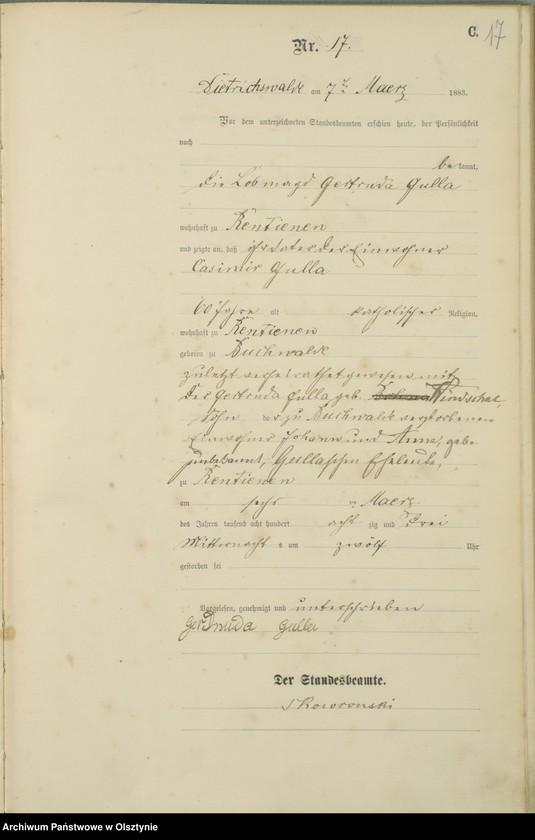 C. 17
Nr. 17.
Dietrichswalde am 7ten Maerz 1883.
Vor dem unterzeichneten Standesbeamten erschien heute, der Persönlichkeit
nach
bekannt,
die Losmagd Gertruda Gulla
wohnhaft zu Rentienen
und zeigte an, daß ihr Vater der Einwohner
Casimir Gulla
60 Jahre alt katholischer Religion,
wohnhaft zu Rentienen
geboren zu Buchwalde
zuletzt verheirathet gewesen mit
der Gertruda Gulla geb.
Sohn der zu Buchwalde verstorbenen
Einwohner Johann und Anna, geb.
unbekannt, Gullaschen Eheleute,
zu Rentienen
am sechs ten Maerz
des Jahres tausend acht hundert acht zig und drei
Mitternacht s um zwölf Uhr
gestorben sei
Vorgelesen, genehmigt und unterschrieben
Gertruda Gulla
Der Standesbeamte.
Skowronski
Archiwum Państwowe w Olsztynie